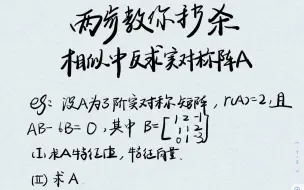 两步教你秒杀
相似中反求实对称阵A
eg: 设A为3阶实对称矩阵, r(A)=2, 且
AB-6B=0, 其中 B=[1 2 -1
1 1 2
0 1 -3]
(I) 求A特征值, 特征向量.
(II) 求A